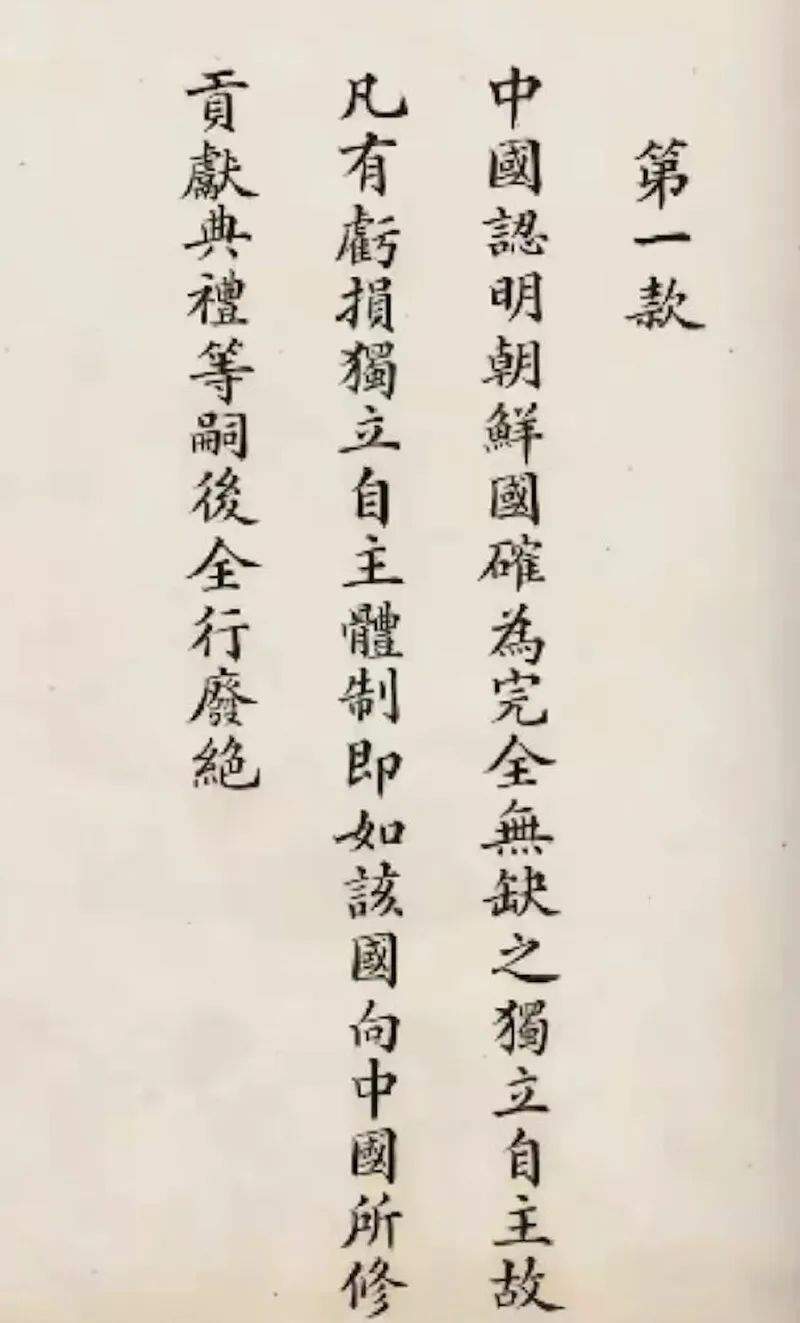 第一款
中國認明朝鮮國確為完全無缺之獨立自主故
凡有虧損獨立自主體制即如該國向中國所修
貢獻典禮等嗣後全行廢絕